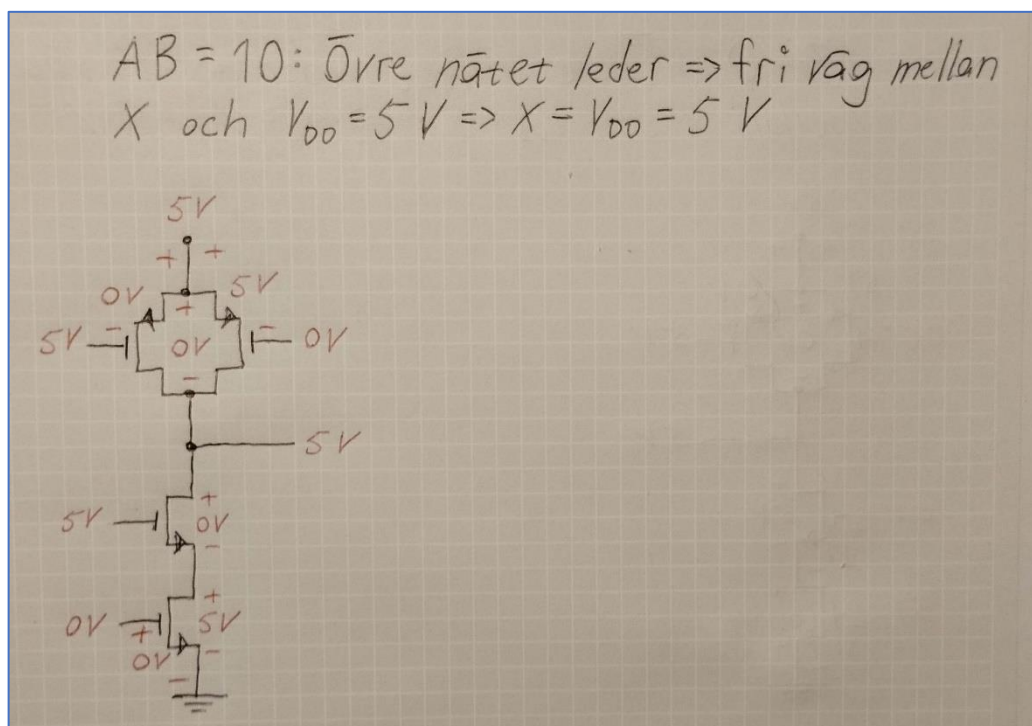 AB = 10: Övre nätet leder => fri väg mellan
X och VDD = 5 V => X = VDD = 5 V
5V
+ +
0V 5V
- + -
5V 0V 0V
-
5V
+
5V 0V
-
+
0V + 5V
0V -
-